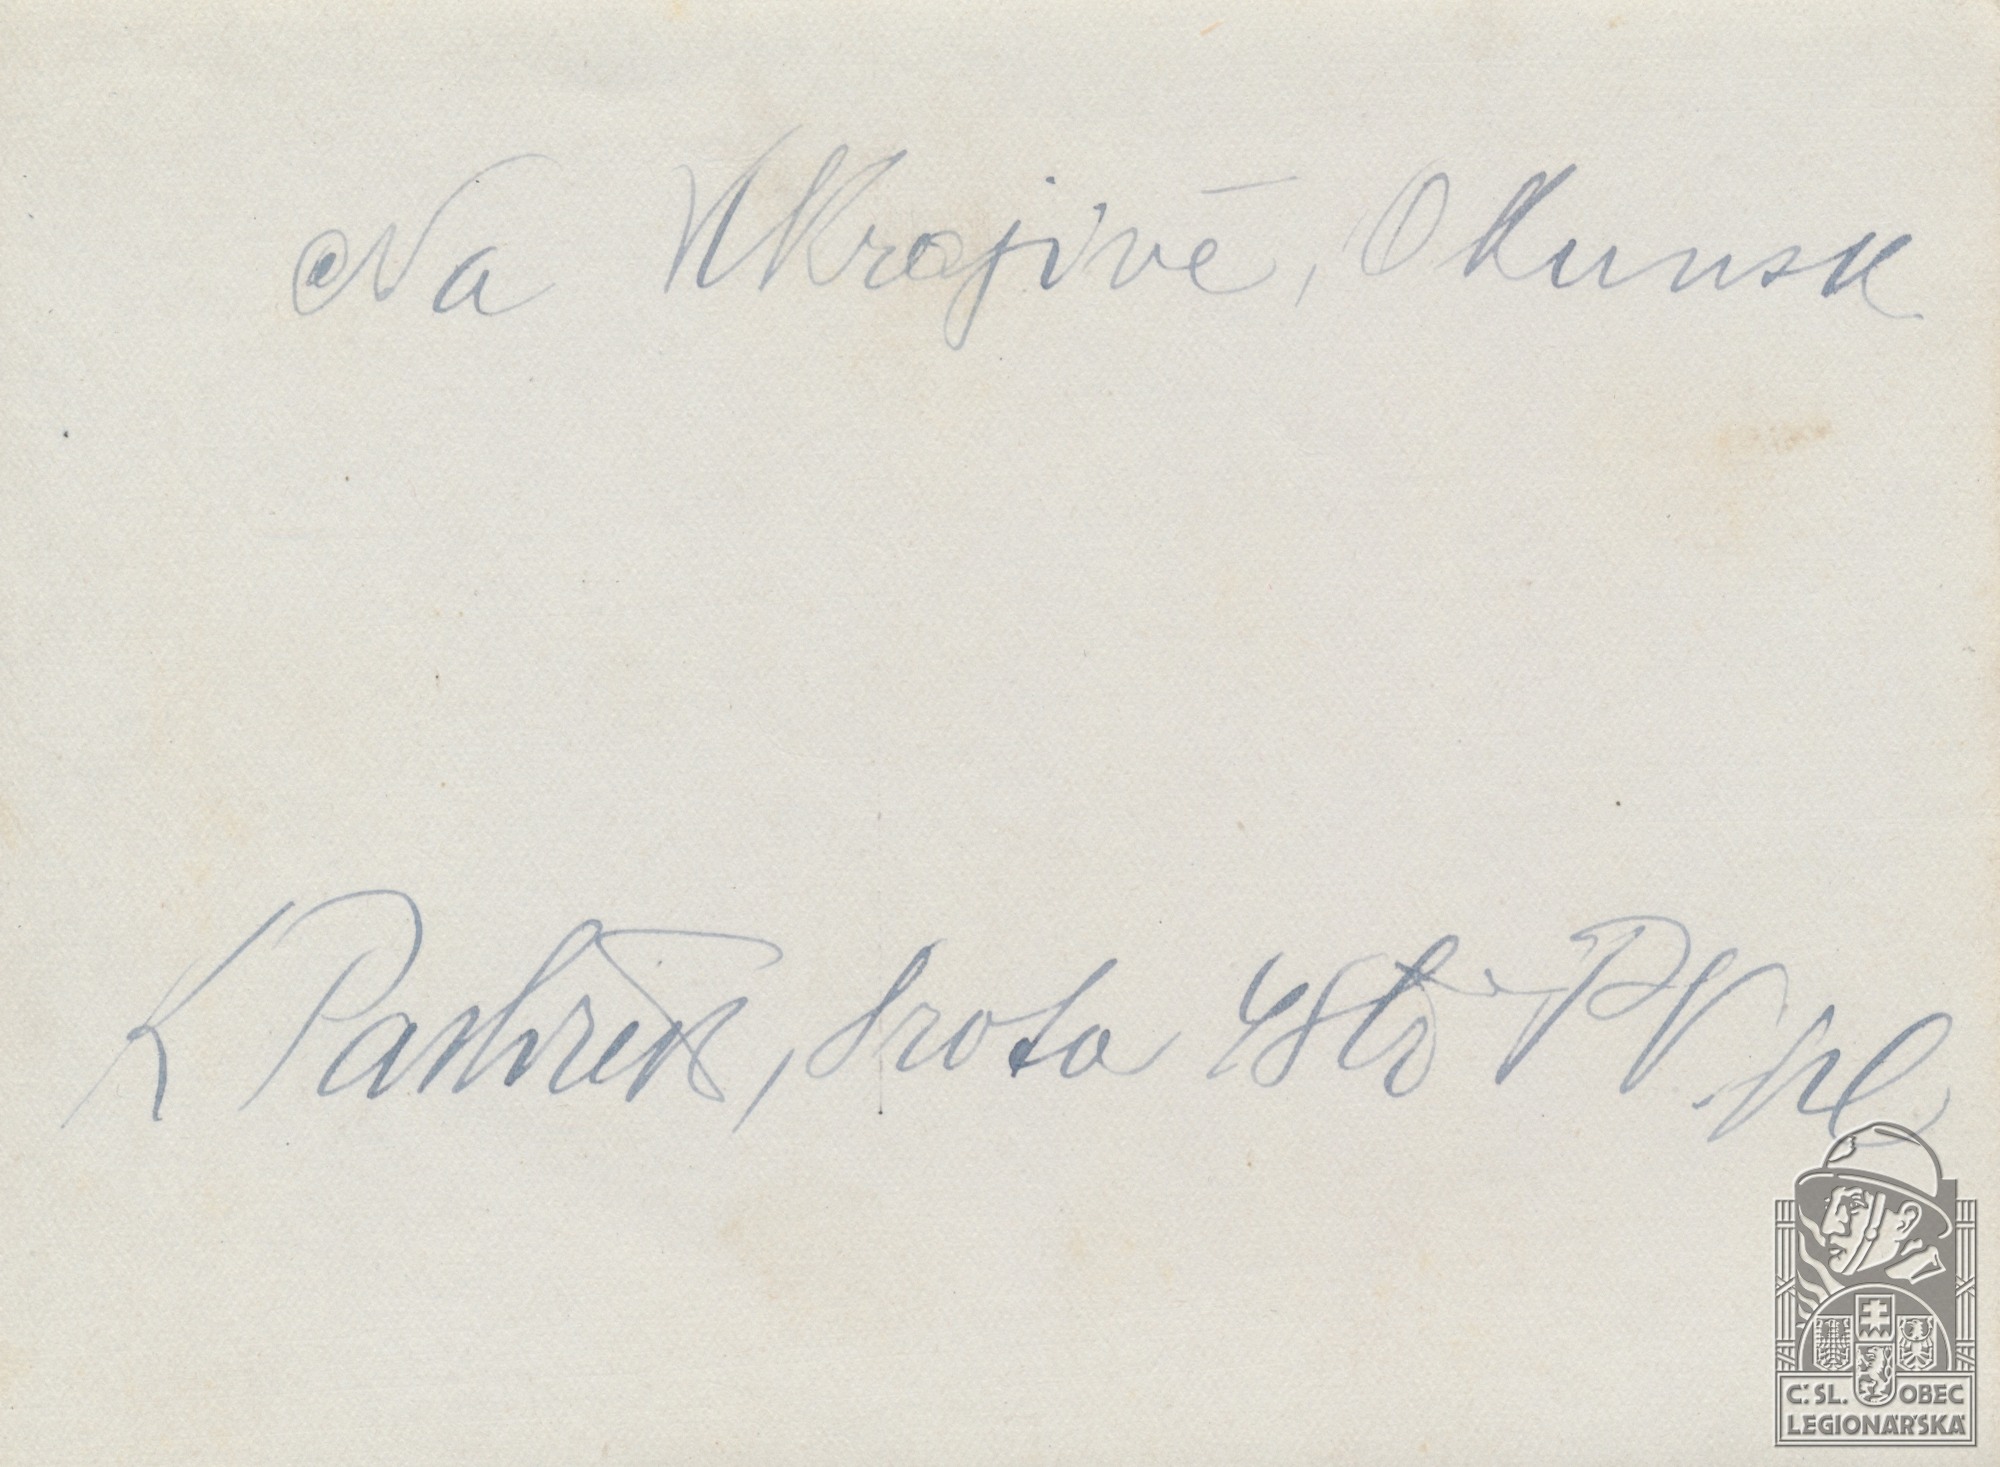 Na Ukrajině, Okunsk
K Pastírek, srota PV. pl
Č. SL. OBEC
LEGIONÁŘSKÁ